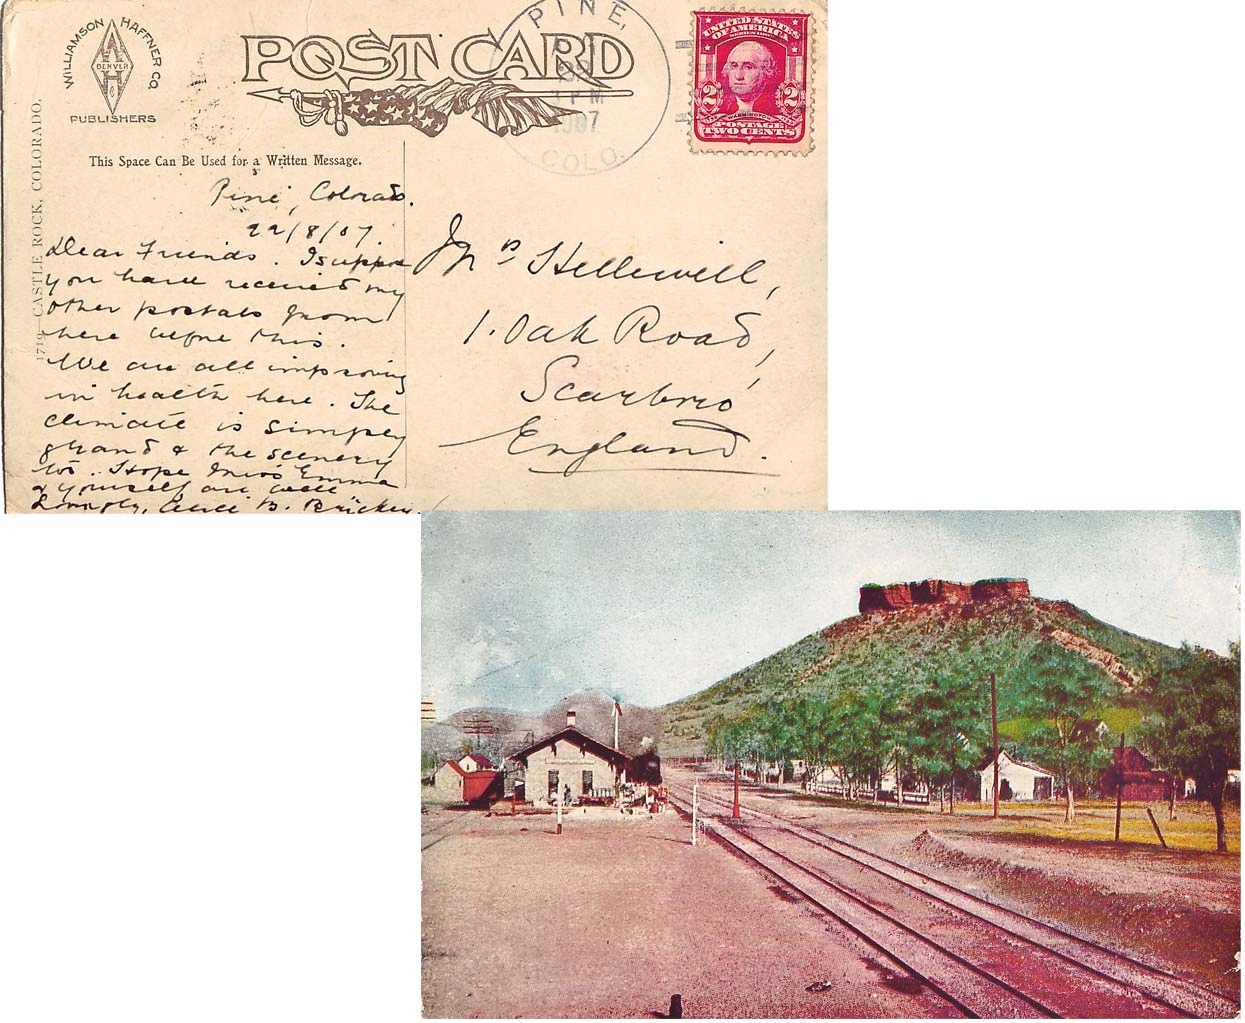 WILLIAMSON HAFFNER CO.
W
DENVER
H
PUBLISHERS
POST CARD
PINE,
22
1 PM
1907
COLO.
UNITED STATES
OF AMERICA
2 2
POSTAGE
TWO CENTS
This Space Can Be Used for a Written Message.
1719—CASTLE ROCK, COLORADO.
Pine, Colorado.
22/8/07.
Dear Friends. I suppose
you have received my
other postals from
here before this.
We are all improving
in health here. The
climate is simply
grand & the scenery
too. Hope Miss Emma
& yourself are well
B.
Mrs Hellewell,
1. Oak Road,
Scarbro'
England.